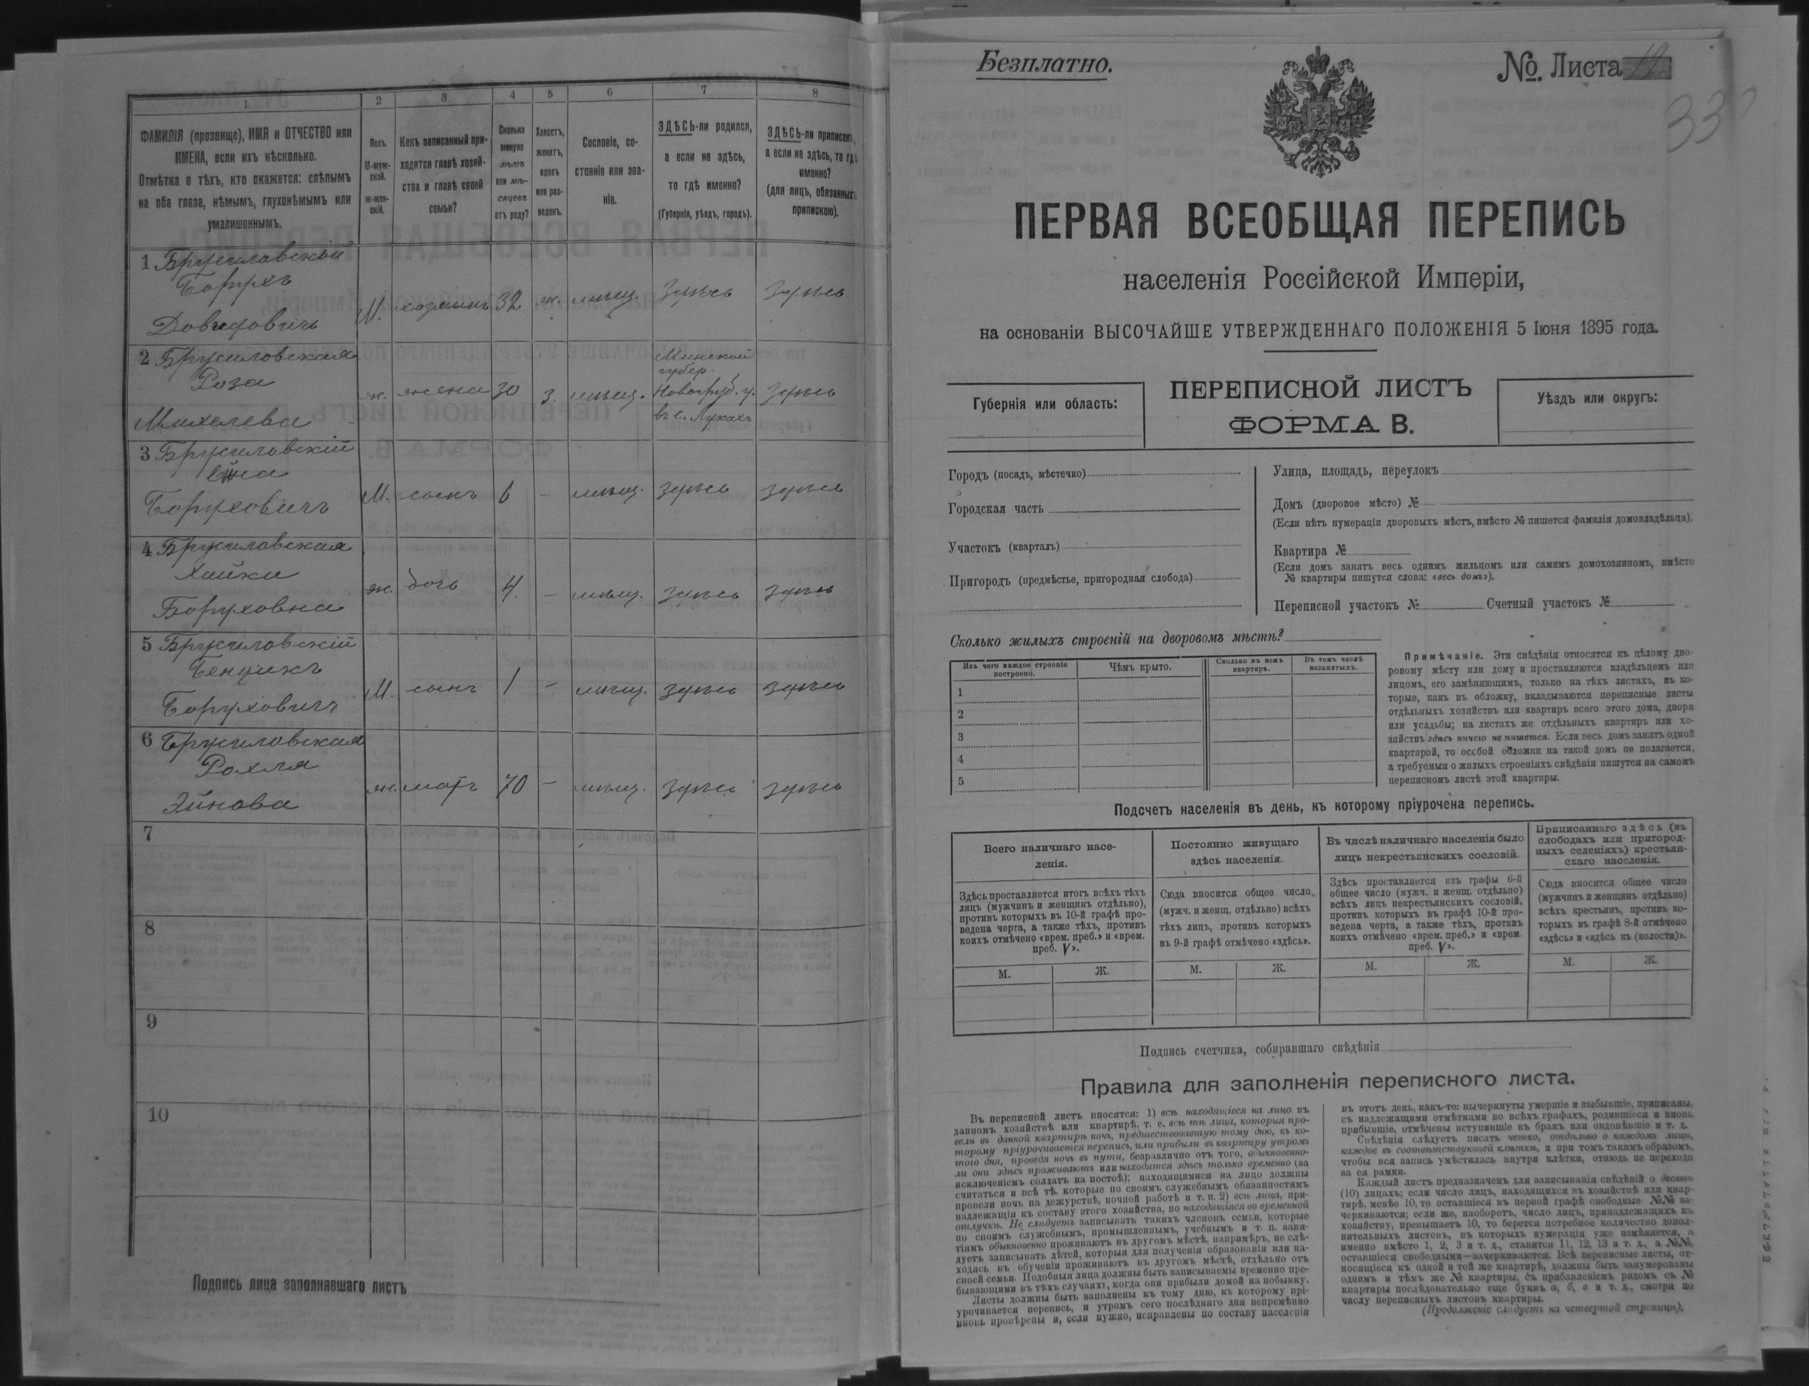 1
2
3
4
5
6
7
8
ФАМИЛІЯ (прозвище), ИМЯ и ОТЧЕСТВО или
ИМЕНА, если ихъ нѣсколько.
Отмѣтка о тѣхъ, кто окажется: слѣпымъ
на оба глаза, нѣмымъ, глухонѣмымъ или
умалишоннымъ.
Полъ.
М-муж-
ской.
ж-жен-
скій.
Какъ записанный при-
ходится главѣ хозяй-
ства и главѣ своей
семьи?
Сколько
минуло
лѣтъ
или мѣ-
сяцевъ
отъ роду?
Холостъ,
женатъ,
вдовъ
или раз-
веденъ.
Сословіе, со-
стояніе или зва-
ніе.
ЗДѢСЬ-ли родился,
а если не здѣсь,
то гдѣ именно?
(Губернія, уѣздъ, городъ).
ЗДѢСЬ-ли приписанъ,
а если не здѣсь, то гдѣ
именно?
(для лицъ, обязанныхъ
припискою).
1 Брусиловскій
Борухъ
Довидовичъ
М. хозяинъ 32 ж. мѣщ. здѣсь здѣсь
2 Брусиловская
Роза
Михелева
ж. жена 30 з. мѣщ.
Минской
губер.
Новогруд. у.
въ с. Лукахъ
здѣсь
3 Брусиловскій
Боруховичъ
М. сынъ 6 – мѣщ. здѣсь здѣсь
4 Брусиловская
Хайка
Боруховна
ж. дочь 4. – мѣщ. здѣсь здѣсь
5 Брусиловскій
Бенцихъ
Боруховичъ
М. сынъ 1 – мѣщ. здѣсь здѣсь
6 Брусиловская
Рохля
Эйнова
ж. мать 70 – мѣщ. здѣсь здѣсь
7
8
9
10
Подпись лица заполнявшаго листъ
Безплатно.
№. Листа 12
33
ПЕРВАЯ ВСЕОБЩАЯ ПЕРЕПИСЬ
населенія Россійской Имперіи,
на основаніи ВЫСОЧАЙШЕ УТВЕРЖДЕННАГО ПОЛОЖЕНІЯ 5 Іюня 1895 года.
Губернія или область:
ПЕРЕПИСНОЙ ЛИСТЪ
ФОРМА В.
Уѣздъ или округъ:
Городъ (посадъ, мѣстечко)
Городская часть
Участокъ (кварталъ)
Пригородъ (предмѣстье, пригородная слобода)
Улица, площадь, переулокъ
Домъ (дворовое мѣсто) №
(Если нѣтъ нумераціи дворовыхъ мѣстъ, вмѣсто № пишется фамилія домовладѣльца).
Квартира №
(Если домъ занятъ весь однимъ жильцомъ или самимъ домохозяиномъ, вмѣсто
№ квартиры пишутся слова: «весь домъ»).
Переписной участокъ № Счетный участокъ №
Сколько жилыхъ строеній на дворовомъ мѣстѣ?
Изъ чего каждое строеніе
построено.
Чѣмъ крыто.
Сколько въ немъ
квартиръ.
Въ томъ числѣ
незанятыхъ.
1
2
3
4
5
Примѣчаніе. Эти свѣдѣнія относятся къ цѣлому дво-
ровому мѣсту или дому и проставляются владѣльцемъ или
лицомъ, его замѣняющимъ, только на тѣхъ листахъ, въ ко-
торые, какъ въ обложку, вкладываются переписные листы
отдѣльныхъ хозяйствъ или квартиръ всего этого дома, двора
или усадьбы; на листахъ же отдѣльныхъ квартиръ или хо-
зяйствъ здѣсь ничего не пишется. Если весь домъ занятъ одной
квартирой, то особой обложки на такой домъ не полагается,
а требуемыя о жилыхъ строеніяхъ свѣдѣнія пишутся на самомъ
переписномъ листѣ этой квартиры.
Подсчетъ населенія въ день, къ которому пріурочена перепись.
Всего наличнаго насе-
ленія.
Здѣсь проставляется итогъ всѣхъ тѣхъ
лицъ (мужчинъ и женщинъ отдѣльно),
противъ которыхъ въ 10-й графѣ про-
ведена черта, а также тѣхъ, противъ
коихъ отмѣчено «врем. преб.» и «врем.
преб. V».
Постоянно живущаго
здѣсь населенія.
Сюда вносится общее число,
(мужч. и женщ. отдѣльно) всѣхъ
тѣхъ лицъ, противъ которыхъ
въ 9-й графѣ отмѣчено «здѣсь».
Въ числѣ наличнаго населенія было
лицъ некрестьянскихъ сословій.
Здѣсь проставляется изъ графы 6-й
общее число (мужч. и женщ. отдѣльно)
всѣхъ лицъ некрестьянскихъ сословій,
противъ которыхъ въ графѣ 10-й про-
ведена черта, а также тѣхъ, противъ
коихъ отмѣчено «врем. преб.» и «врем.
преб. V».
Приписаннаго здѣсь (въ
слободахъ или пригород-
ныхъ селеніяхъ) крестьян-
скаго населенія.
Сюда вносится общее число
(мужчинъ и женщинъ отдѣльно)
всѣхъ крестьянъ, противъ ко-
торыхъ въ графѣ 8-й отмѣчено
«здѣсь» и «здѣсь къ (волости)».
М. Ж. М. Ж. М. Ж. М. Ж.
Подпись счетчика, собиравшаго свѣдѣнія
Правила для заполненія переписного листа.
Въ переписной листъ вносятся: 1) всѣ находящіеся на лицо въ
данномъ хозяйствѣ или квартирѣ, т. е. всѣ тѣ лица, которыя про-
вели въ данной квартирѣ ночь, предшествовавшую тому дню, къ ко-
торому пріурочивается перепись, или прибыли въ квартиру утромъ
того дня, проведя ночь въ пути, безразлично отъ того, обыкновенно-
ли они здѣсь проживаютъ или находятся здѣсь только временно (за
исключеніемъ солдатъ на постоѣ); находящимися на лицо должны
считаться и всѣ тѣ, которые по своимъ служебнымъ обязанностямъ
провели ночь на дежурствѣ, ночной работѣ и т. п. 2) всѣ лица, при-
надлежащія къ составу этого хозяйства, но находящіяся во временной
отлучкѣ. Не слѣдуетъ записывать такихъ членовъ семьи, которые
по своимъ служебнымъ, промышленнымъ, учебнымъ и т. п. заня-
тіямъ обыкновенно проживаютъ въ другомъ мѣстѣ, напримѣръ, не слѣ-
дуетъ записывать дѣтей, которыя для полученія образованія или на-
ходясь въ обученіи проживаютъ въ другомъ мѣстѣ, отдѣльно отъ
своей семьи. Подобныя лица должны быть записываемы временно пре-
бывающими въ тѣхъ случаяхъ, когда они прибыли домой на побывку.
Листы должны быть заполнены къ тому дню, къ которому прі-
урочивается перепись, и утромъ сего послѣдняго дня непремѣнно
вновь провѣрены и, если нужно, исправлены по составу населенія
въ этотъ день, какъ-то: вычеркнуты умершіе и выбывшіе, приписаны,
съ надлежащими отмѣтками во всѣхъ графахъ, родившіеся и вновь
прибывшіе, отмѣчены вступившіе въ бракъ или овдовѣвшіе и т. д.
Свѣдѣнія слѣдуетъ писать четко, отдѣльно о каждомъ лицѣ,
каждое въ соотвѣтствующей клѣткѣ, и при томъ такимъ образомъ,
чтобы вся запись умѣстилась внутри клѣтки, отнюдь не переходя
за ея рамки.
Каждый листъ предназначенъ для записыванія свѣдѣній о десяти
(10) лицахъ; если число лицъ, находящихся въ хозяйствѣ или квар-
тирѣ, менѣе 10, то оставшіеся въ первой графѣ свободные №№ за-
черкиваются; если же, наоборотъ, число лицъ, принадлежащихъ къ
хозяйству, превышаетъ 10, то берется потребное количество допол-
нительныхъ листовъ, въ которыхъ нумерація уже измѣняется, а
именно вмѣсто 1, 2, 3 и т. д., ставится 11, 12, 13 и т. д., а №№,
оставшіеся свободными—зачеркиваются. Всѣ переписные листы, от-
носящіеся къ одной и той же квартирѣ, должны быть занумерованы
однимъ и тѣмъ же № квартиры, съ прибавленіемъ рядомъ съ №
квартиры послѣдовательно еще буквъ а, б, в и т. д., смотря по
числу переписныхъ листовъ квартиры.
(Продолженіе слѣдуетъ на четвертой страницѣ).